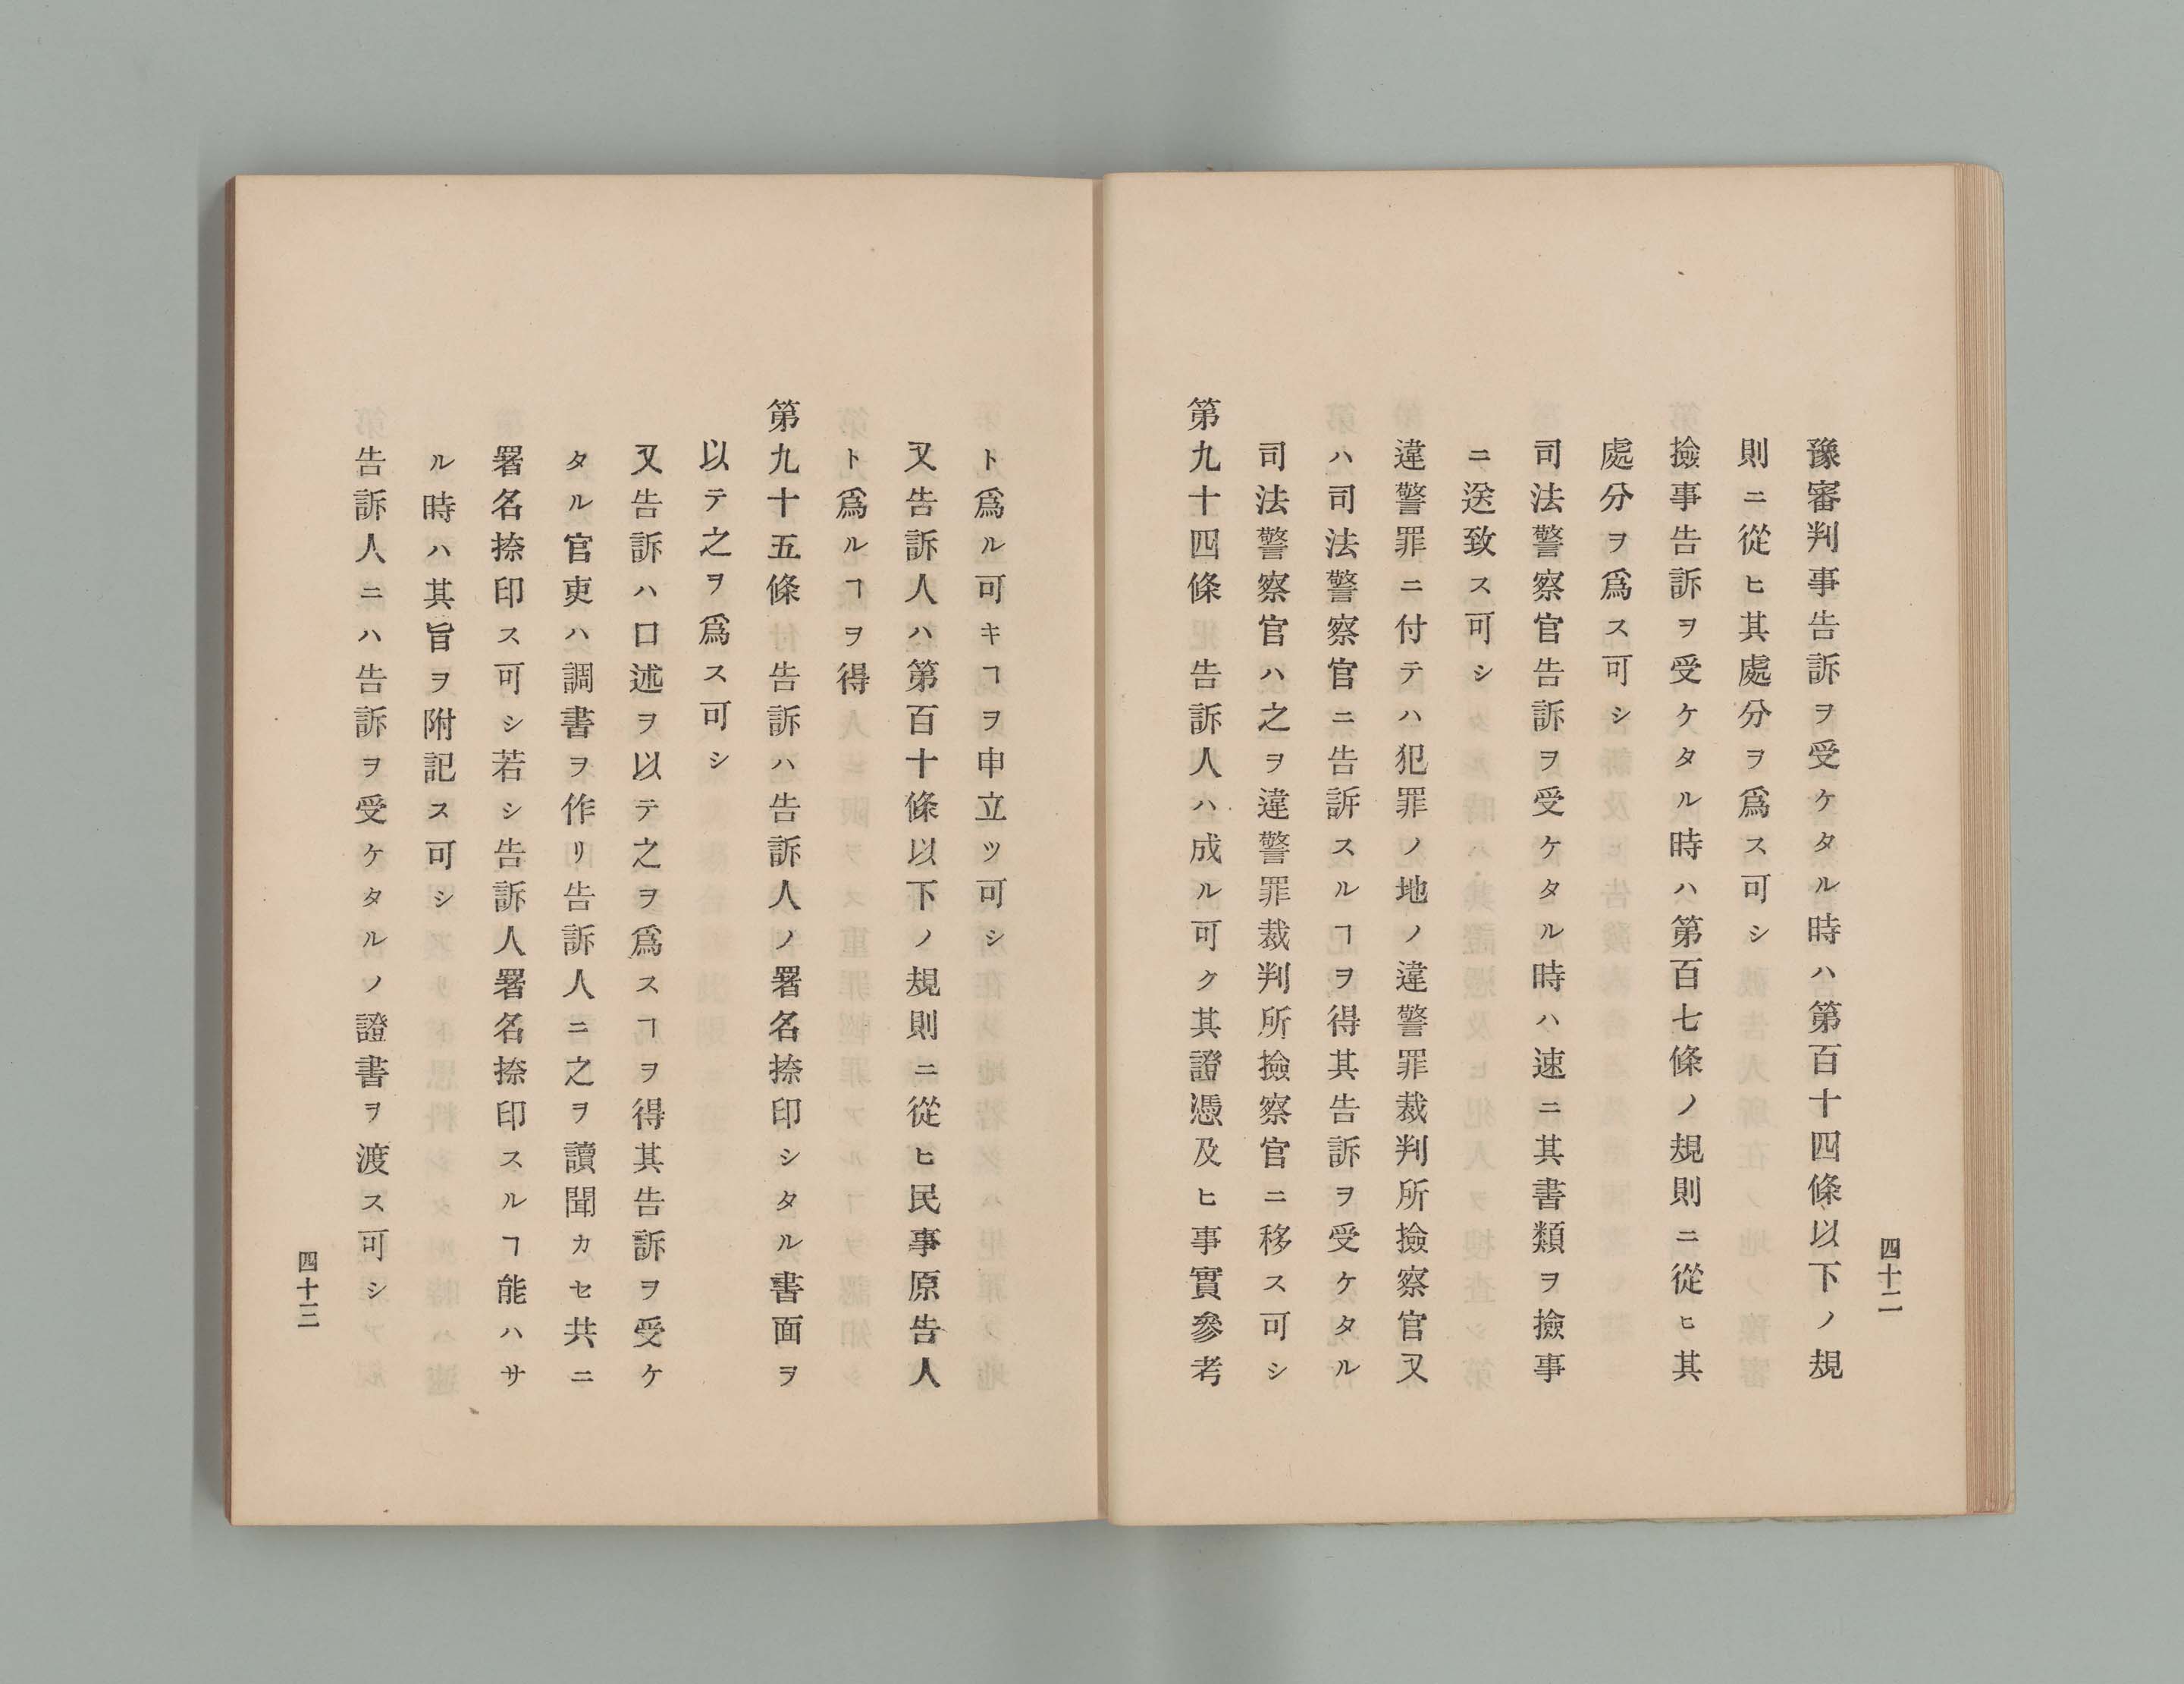 四十二
豫審判事告訴ヲ受ケタル時ハ第百十四條以下ノ規
則ニ從ヒ其處分ヲ爲ス可シ
撿事告訴ヲ受ケタル時ハ第百七條ノ規則ニ從ヒ其
處分ヲ爲ス可シ
司法警察官告訴ヲ受ケタル時ハ速ニ其書類ヲ撿事
ニ送致ス可シ
違警罪ニ付テハ犯罪ノ地ノ違警罪裁判所撿察官又
ハ司法警察官ニ告訴スルヿヲ得其告訴ヲ受ケタル
司法警察官ハ之ヲ違警罪裁判所撿察官ニ移ス可シ
第九十四條 告訴人ハ成ル可ク其證憑及ヒ事實參考
ト爲ル可キヿヲ申立ツ可シ
又告訴人ハ第百十條以下ノ規則ニ從ヒ民事原告人
ト爲ルヿヲ得
第九十五條 告訴ハ告訴人ノ署名捺印シタル書面ヲ
以テ之ヲ爲ス可シ
又告訴ハ口述ヲ以テ之ヲ爲スヿヲ得其告訴ヲ受ケ
タル官吏ハ調書ヲ作リ告訴人ニ之ヲ讀聞カセ共ニ
署名捺印ス可シ若シ告訴人署名捺印スルヿ能ハサ
ル時ハ其旨ヲ附記ス可シ
告訴人ニハ告訴ヲ受ケタルノ證書ヲ渡ス可シ
四十三